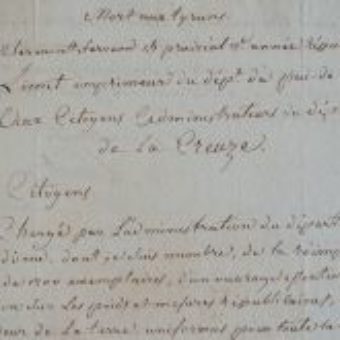 Mort aux tyrans
Clermont-ferrand prairial 2e année répu
imprimeur du dépt du puy de
Aux Citoyens Administrateurs du dép
de La Creuze.
Citoyens
Chargé par L'administration du départ
dont je suis membre, de la réimp
de 1200 exemplaires, d'un ouvrage
sur Les poids et mesures républicains,
de La terre uniformes pour toute la